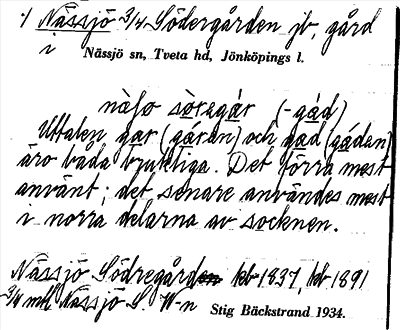 1/ Nässjö 3/4 Södergården jb, gård
i Nässjö sn, Tveta hd, Jönköpings l.
näʃo sòregár (-gád)
Uttalen gar (gáran) och gad (gádan)
äro båda brukliga. Det förra mest
använt; det senare användes mest
i norra delarna av socknen.
Nässjö Södregården kb 1837, kb 1891
3/4 mtl Nässjö S. W-n
Stig Bäckstrand 1934.